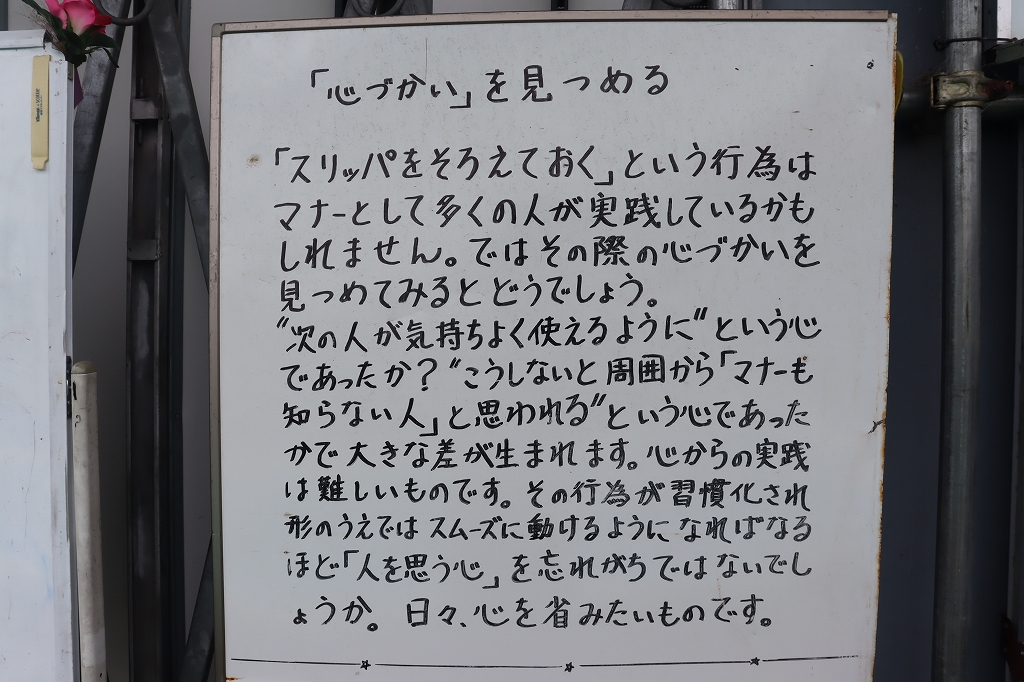 「心づかい」を見つめる
「スリッパをそろえておく」という行為は
マナーとして多くの人が実践しているかも
しれません。ではその際の心づかいを
見つめてみるとどうでしょう。
〝次の人が気持ちよく使えるように〟という心
であったか？〝こうしないと周囲から「マナーも
知らない人」と思われる〟という心であった
かで大きな差が生まれます。心からの実践
は難しいものです。その行為が習慣化され
形のうえではスムーズに動けるようになればなる
ほど「人を思う心」を忘れがちではないでし
ょうか。日々、心を省みたいものです。